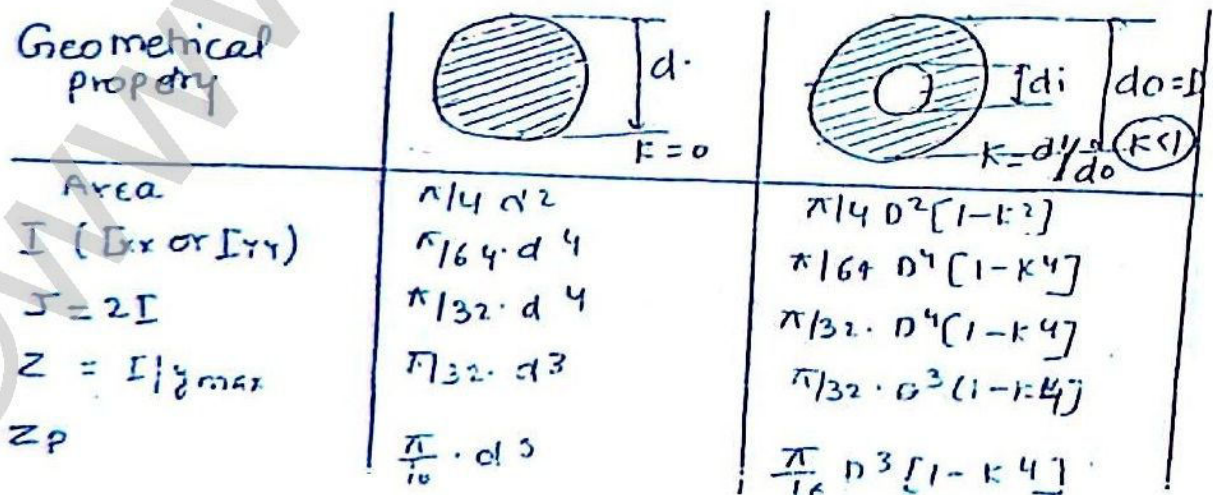 Geometrical property
d.
K = 0
di
do = D
K = di/do (K<1)
Area
π/4 d2
π/4 D2 [1-K2]
I (Ixx or Iyy)
π/64. d4
π/64 D4 [1-K4]
J = 2I
π/32. d4
π/32. D4 [1-K4]
Z = I/ymax
π/32. d3
π/32. D3 (1-K4]
Zp
π/16 . d3
π/16 D3 [1-K4]